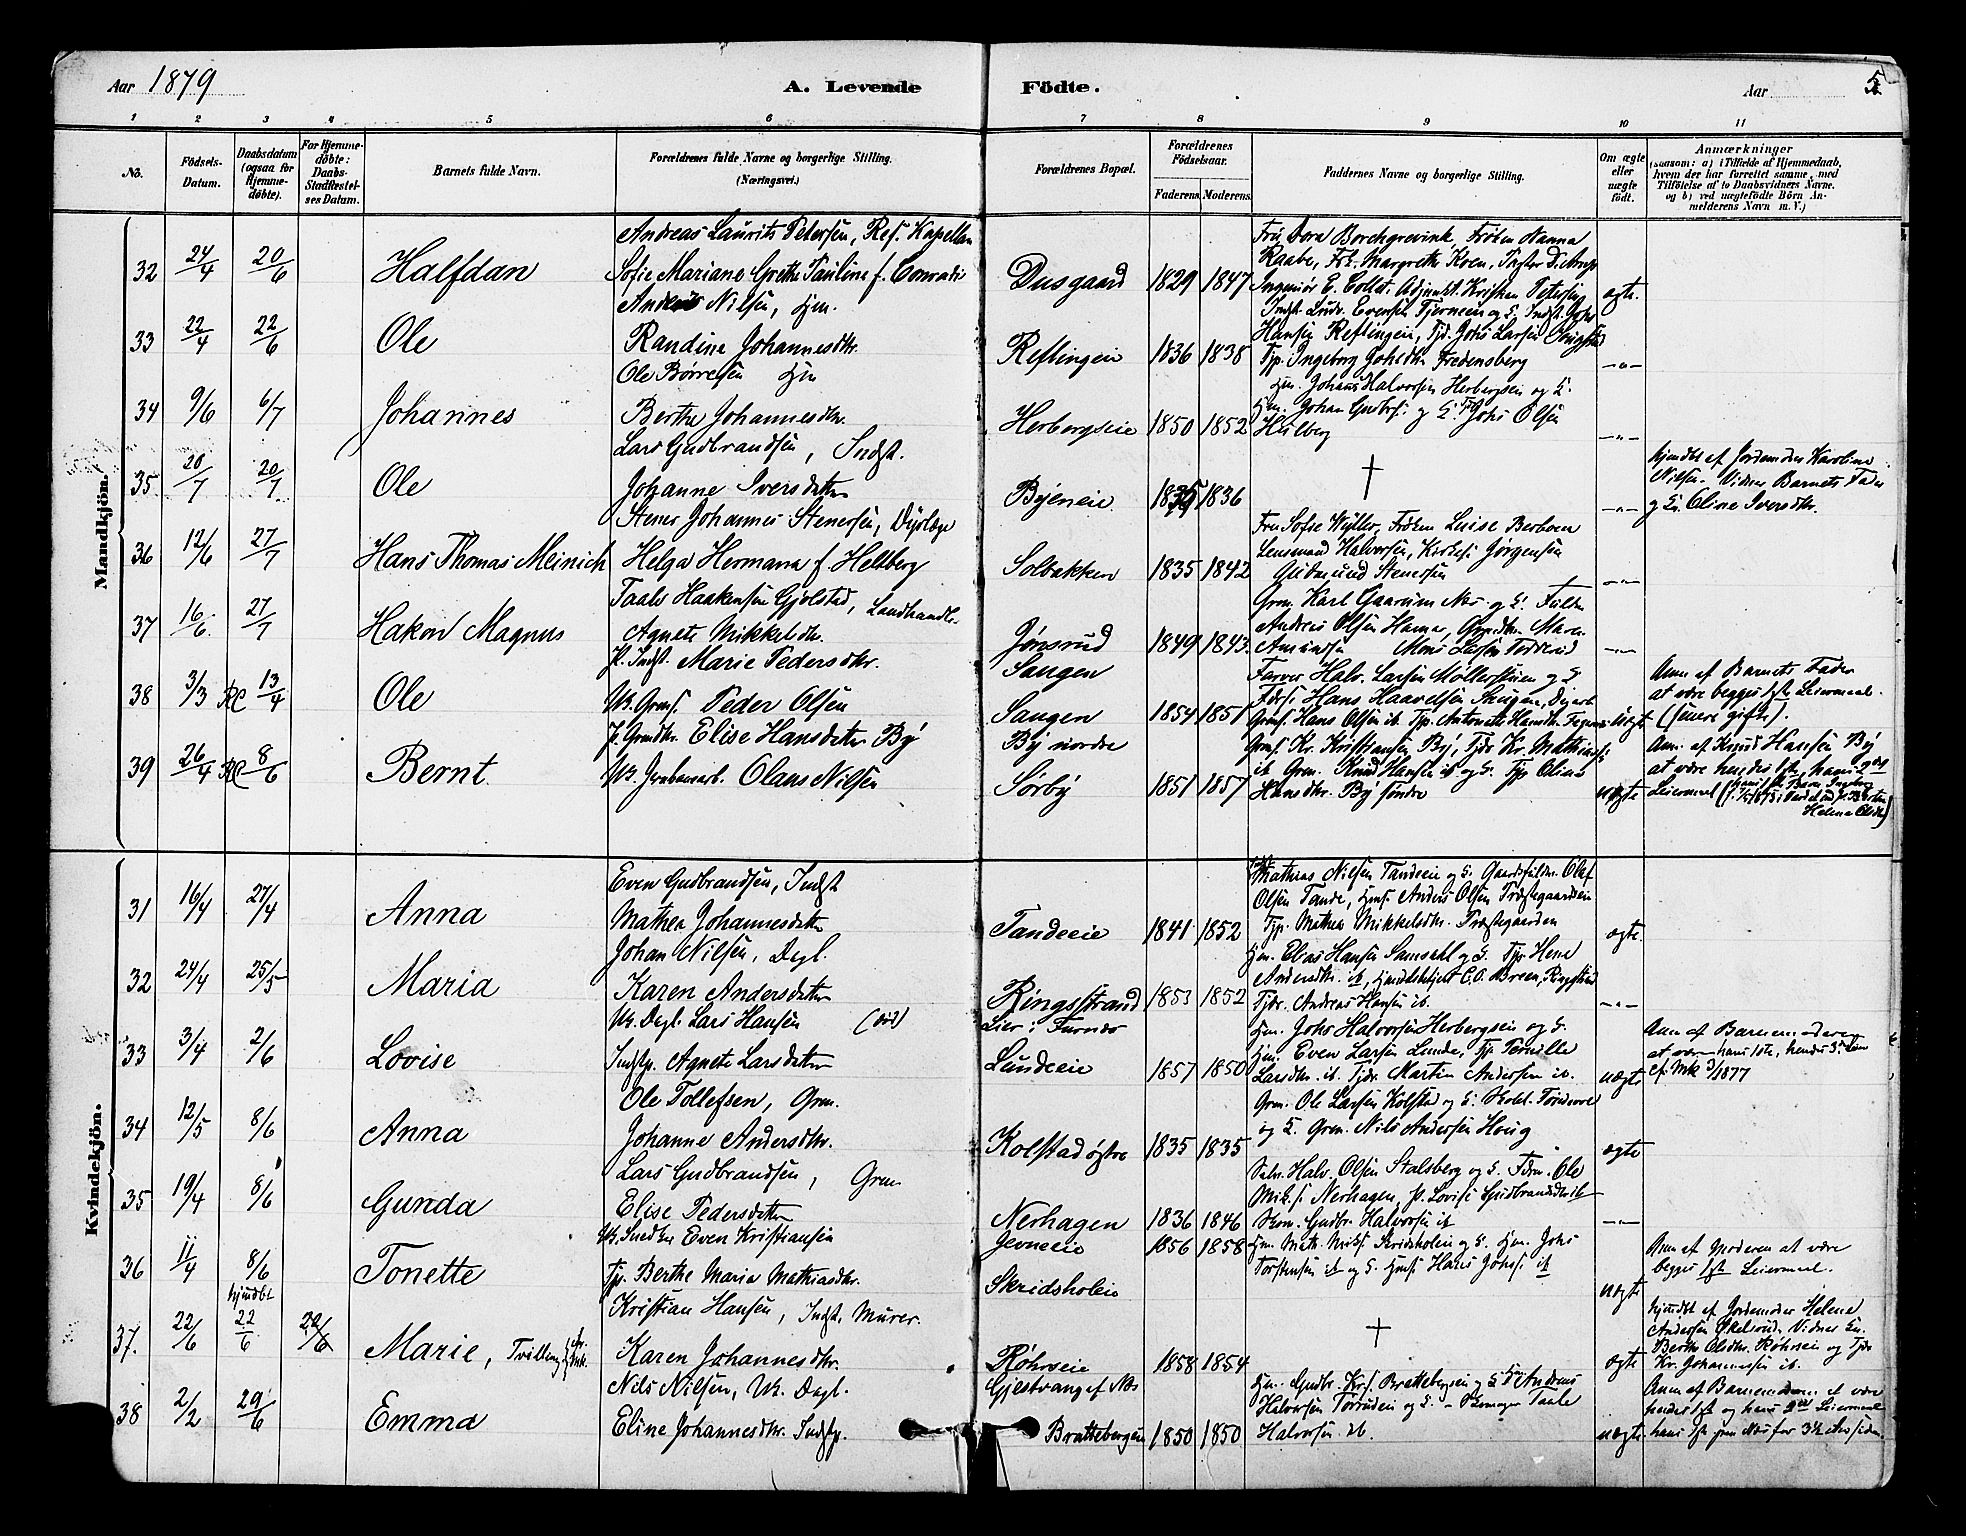 Aar 1879
A. Levende Födte.
Aar
5
1 2 3 4 5 6 7 8 9 10 11
No.
Födsels-Datum.
Daabsdatum (ogsaa for Hjemme-döbte).
For Hjemme-döbte: Daabs-Stadfæstel-ses Datum.
Barnets fulde Navn.
Forældrenes fulde Navne og borgerlige Stilling. (Næringsvei.)
Forældrenes Bopæl.
Forældrenes Födselsaar.
Faderens. Moderens.
Faddernes Navne og borgerlige Stilling.
Om ægte eller uægte födt.
Anmærkninger
(saasom: a) i Tilfælde af Hjemmedaab, hvem der har forrettet samme, med Tilföielse af to Daabsvidners Navne. og b) ved uægtefödte Börn An-melderens Navn m. V.)
Mandkjön.
32 24/4 20/6 Halfdan
Andreas Laurits Petersen, Res. Kapellan
Sofie Mariane Grethe Pauline f. Conradi
Dusgaard 1829 1847
Fru Dora Borchgrevink, Frøken Nanna
Raabe, Frk. Margrethe Koen, Pastor
Ingeniør E. Collet, Adjunkt Kristian Petersen
ægte.
33 22/4 22/6 Ole
Anders Nilsen, Hm.
Randine Johannesdtr.
Reflingeie 1836 1838
Indst. Ludv. Evensen Tjerneeie og H. Indst. Johs
Hansen Reflingeie, Tjd. Johs Larsen
Tjp. Ingeborg Johsdtr. Fredensberg
—"—
34 9/6 6/7 Johannes
Ole Børresen Hm
Berthe Johannesdtr.
Herbergseie 1850 1852
Hm. Johans Halvorsen Herbergseie og H.
Hm. Johan Gudbrs. og H. Tj. Johs Olsen
—"—
35 20/7 20/7 Ole
Lars Gudbrandsen, Indst.
Johanne Iversdatter
Byeneie 1835 1836
†
—"—
hjemdbt af Jordemoder Karoline
Nilsen. Vidner Barnets Fader
og En. Oline Iversdtr.
36 12/6 27/7 Hans Thomas Meinich
Stener Johannes Stenersen, Dyrlæge
Helga Hermana f. Heltberg
Solbakken 1835 1842
Fru Sofie Wyller, Frøken Luise
Lensmand Halvorsen, Kirkes. Jørgensen
Gudmund Stenersen
—"—
37 16/6 27/7 Hakon Magnus
Taale Haakensen Gjølstad, Landhandler
Agnete Mikkelsdtr.
Jønsrud 1849 1843
Grm. Karl Gaarum Næs og H.
Andreas Olsen Hamar, Maren
Amundsen Mons Larsen
—"—
38 3/3 13/4 Ole
P. Indst. Marie Pedersdtr.
Uk. Grms. Peder Olsen
Saugen
Saugen 1854 1851
Farver Halv. Larsen Møllerstuen og H.
Hans Haavelsen Skugen,
Grms. Hans Olsen ib. Tjp. Antonette Hansdtr.
Uægte
Anm. af Barnets Fader
at være begges 1ste Leiermaal.
(senere gifte).
39 26/4 8/6 Bernt
P. Grmdtr. Elise Hansdatter By
Uk. Grubearb. Olaus Nilsen
By nordre
Sørby 1851 1857
Grms. Kr. Kristiansen By, Tjdr. Kr. Mathias
ib Grm. Knud Hansen ib og H. Tjp Oline
Hansdtr. By søndre
uægte
Anm. af Knud Hansen By
at være hendes 1ste, hans 2det
Leiermaal
Helene Olsdtr)
Kvindekjön.
31 16/4 27/4 Anna
Even Gudbrandsen, Indst
Mathea Johannesdatter
Tandeeie 1841 1852
Mathias Nilsen Tandeeie og H. Olaf
Olsen Tande, Hms. Anders Olsen Præstegaardeie
Tjp. Mathea Mikkelsdtr. Præstegaarden
ægte.
32 24/4 25/5 Maria
Johan Nilsen, Dagl.
Karen Andersdatter
Ringsstrand 1853 1852
Hm. Elias Hansen Samsahl og H. Tjp Hene
Andersdtr. ib, Handelsbetjent C.O. Breen, Ringstad
Tjdr. Andreas Hansen ib.
—"—
33 3/4 2/6 Lovise
Uk. Dagl. Lars Hansen
Indstp. Agnete Larsdatter
Lier i Furnæs
Lundeeie 1857 1850
Hm. Johs Halvorsen Herbergseie og H.
Hm. Even Larsen Lunde, Tjp. Pernille
Larsdtr. ib. Tjdr. Martin Andersen ib.
uægte
Anm af Barnemoderen
at være hans 1ste, hendes 3die
34 12/5 8/6 Anna
Ole Tollefsen, Grm.
Johanne Andersdtr.
Kolstad østre 1835 1835
Grm. Ole Larsen Kolstad og H.
og H. Grm. Nils Andersen Houg
ægte
35 19/4 8/6 Gunda
Lars Gudbrandsen, Grm
Elise Pedersdatter
Nerhagen 1836 1846
Halv. Olsen Stalsberg og H. Ole
Nerhagen, P. Lovise Gudbrandsdtr ib
Gudbr. Halvorsen ib
—"—
36 11/4 8/6 Tonette
Uk. Snedker Even Kristiansen
Tjp. Berthe Maria Mathiasdtr.
Jevneeie 1856 1858
Skridsholeie
Hm. Math. Skridsholeie og H. Hm. Johs
Torstensen ib og H. Hms. Hans Johss ib
uægte
Anm af Moderen at være
begges 1ste Leiermaal.
37. 22/6 hjemdbt 22/6 22/6 Marie, Tvilling
Kristian Hansen, Indst. Murer.
Karen Johannesdtr.
Røhrseie 1858 1854
†
ægte
hjemdbt af Jordemoder Helene
Andersen Økelsrud. Vidner En.
Berthe Olsdtr. Røhrseie og Tjdr
Kr. Johannessen ib.
38 2/2 29/6 Emma
Nils Nilsen, Uk. Dagl.
Eline Johannesdtr. Indstp.
Gjestvang af Næs
Brattebergeie 1850 1850
Hm. Gudbr. Krs. Brattebergeie og H. Andreas
Halvorsen og H. Taale
Halvorsen ib.
uægte
Anm af Barnemoderen at være
hendes 1ste og hans 2det Leiermaal
hans 1ste paa Næs for 3½ Aar siden.